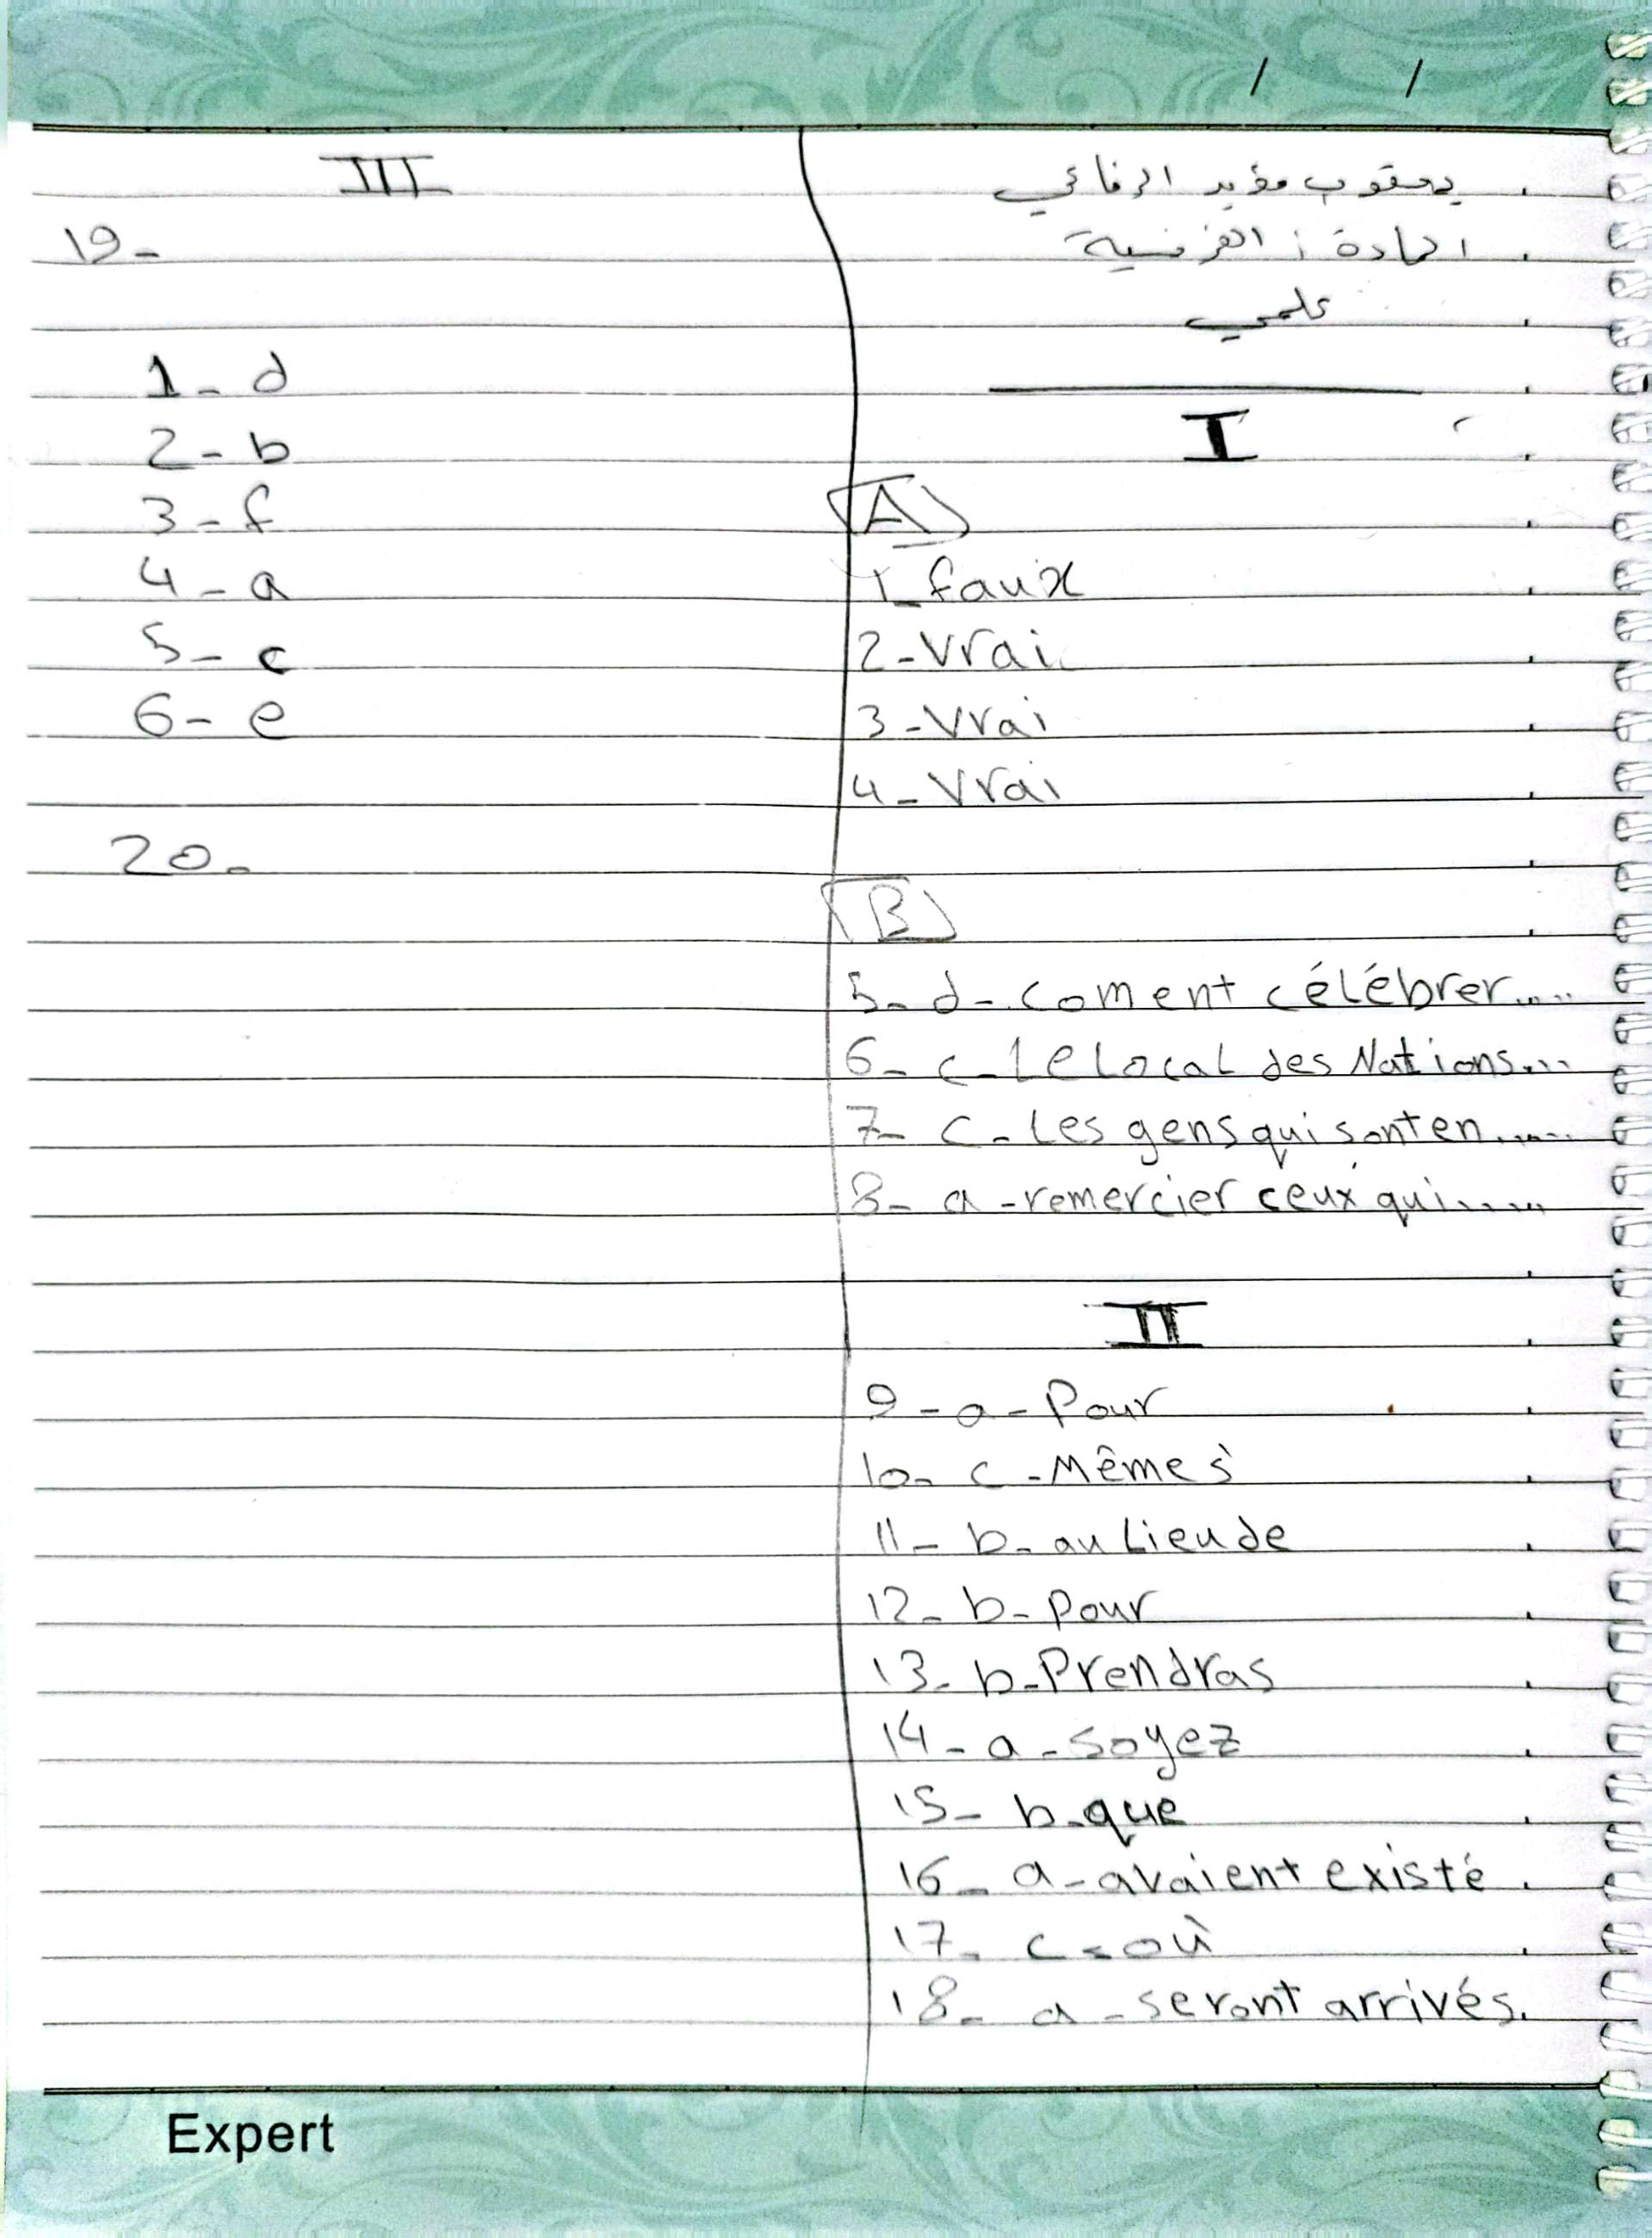 / /
يعقوب مؤيد الرفاعي
المادة : الفرنسية
علمي
I
A
1_faux
2-Vrai
3-Vrai
4-Vrai
B
5-d-coment célébrer.....
6-c-Le Local des Nations...
7-c-Les gens qui sont en.....
8-a-remercier ceux qui.....
II
9-a-Pour
10-c-Mêmes
11-b-au Lieu de
12-b-pour
13-b-Prendras
14-a-soyez
15-b-que
16-a-avaient existé.
17-c-où
18-a-seront arrivés.
III
19-
1-d
2-b
3-f
4-a
5-c
6-e
20-
Expert